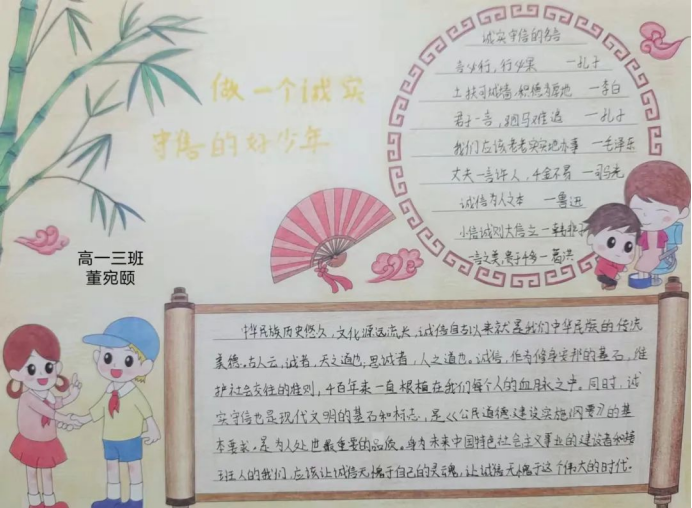 做一个诚实
守信的好少年
高一三班
董宛颐
诚实守信的名言
言必行，行必果 —孔子
土扶可城墙，积德为厚地 —李白
君子一言，驷马难追 —孔子
我们应该老老实实地办事 —毛泽东
丈夫一言许人，千金不易 —司马光
诚信为人之本 —鲁迅
小信诚则大信立 —韩非子
一言之美，贵于千金 —葛洪
中华民族历史悠久，文化源远流长，诚信自古以来就是我们中华民族的传统
美德。古人云，诚者，天之道也，思诚者，人之道也。诚信，作为修身安邦的基石，维
护社会交往的准则，千百年来一直根植在我们每个人的血脉之中。同时，诚
实守信也是现代文明的基石和标志，是《公民道德建设实施纲要》的基
本要求，是为人处世最重要的品质。身为未来中国特色社会主义事业的建设者和接
班人的我们，应该让诚信无愧于自己的灵魂，让诚信无愧于这个伟大的时代。